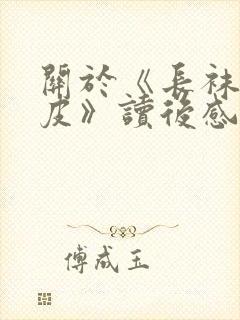 關於《長袜
皮》讀後感
傅成玉